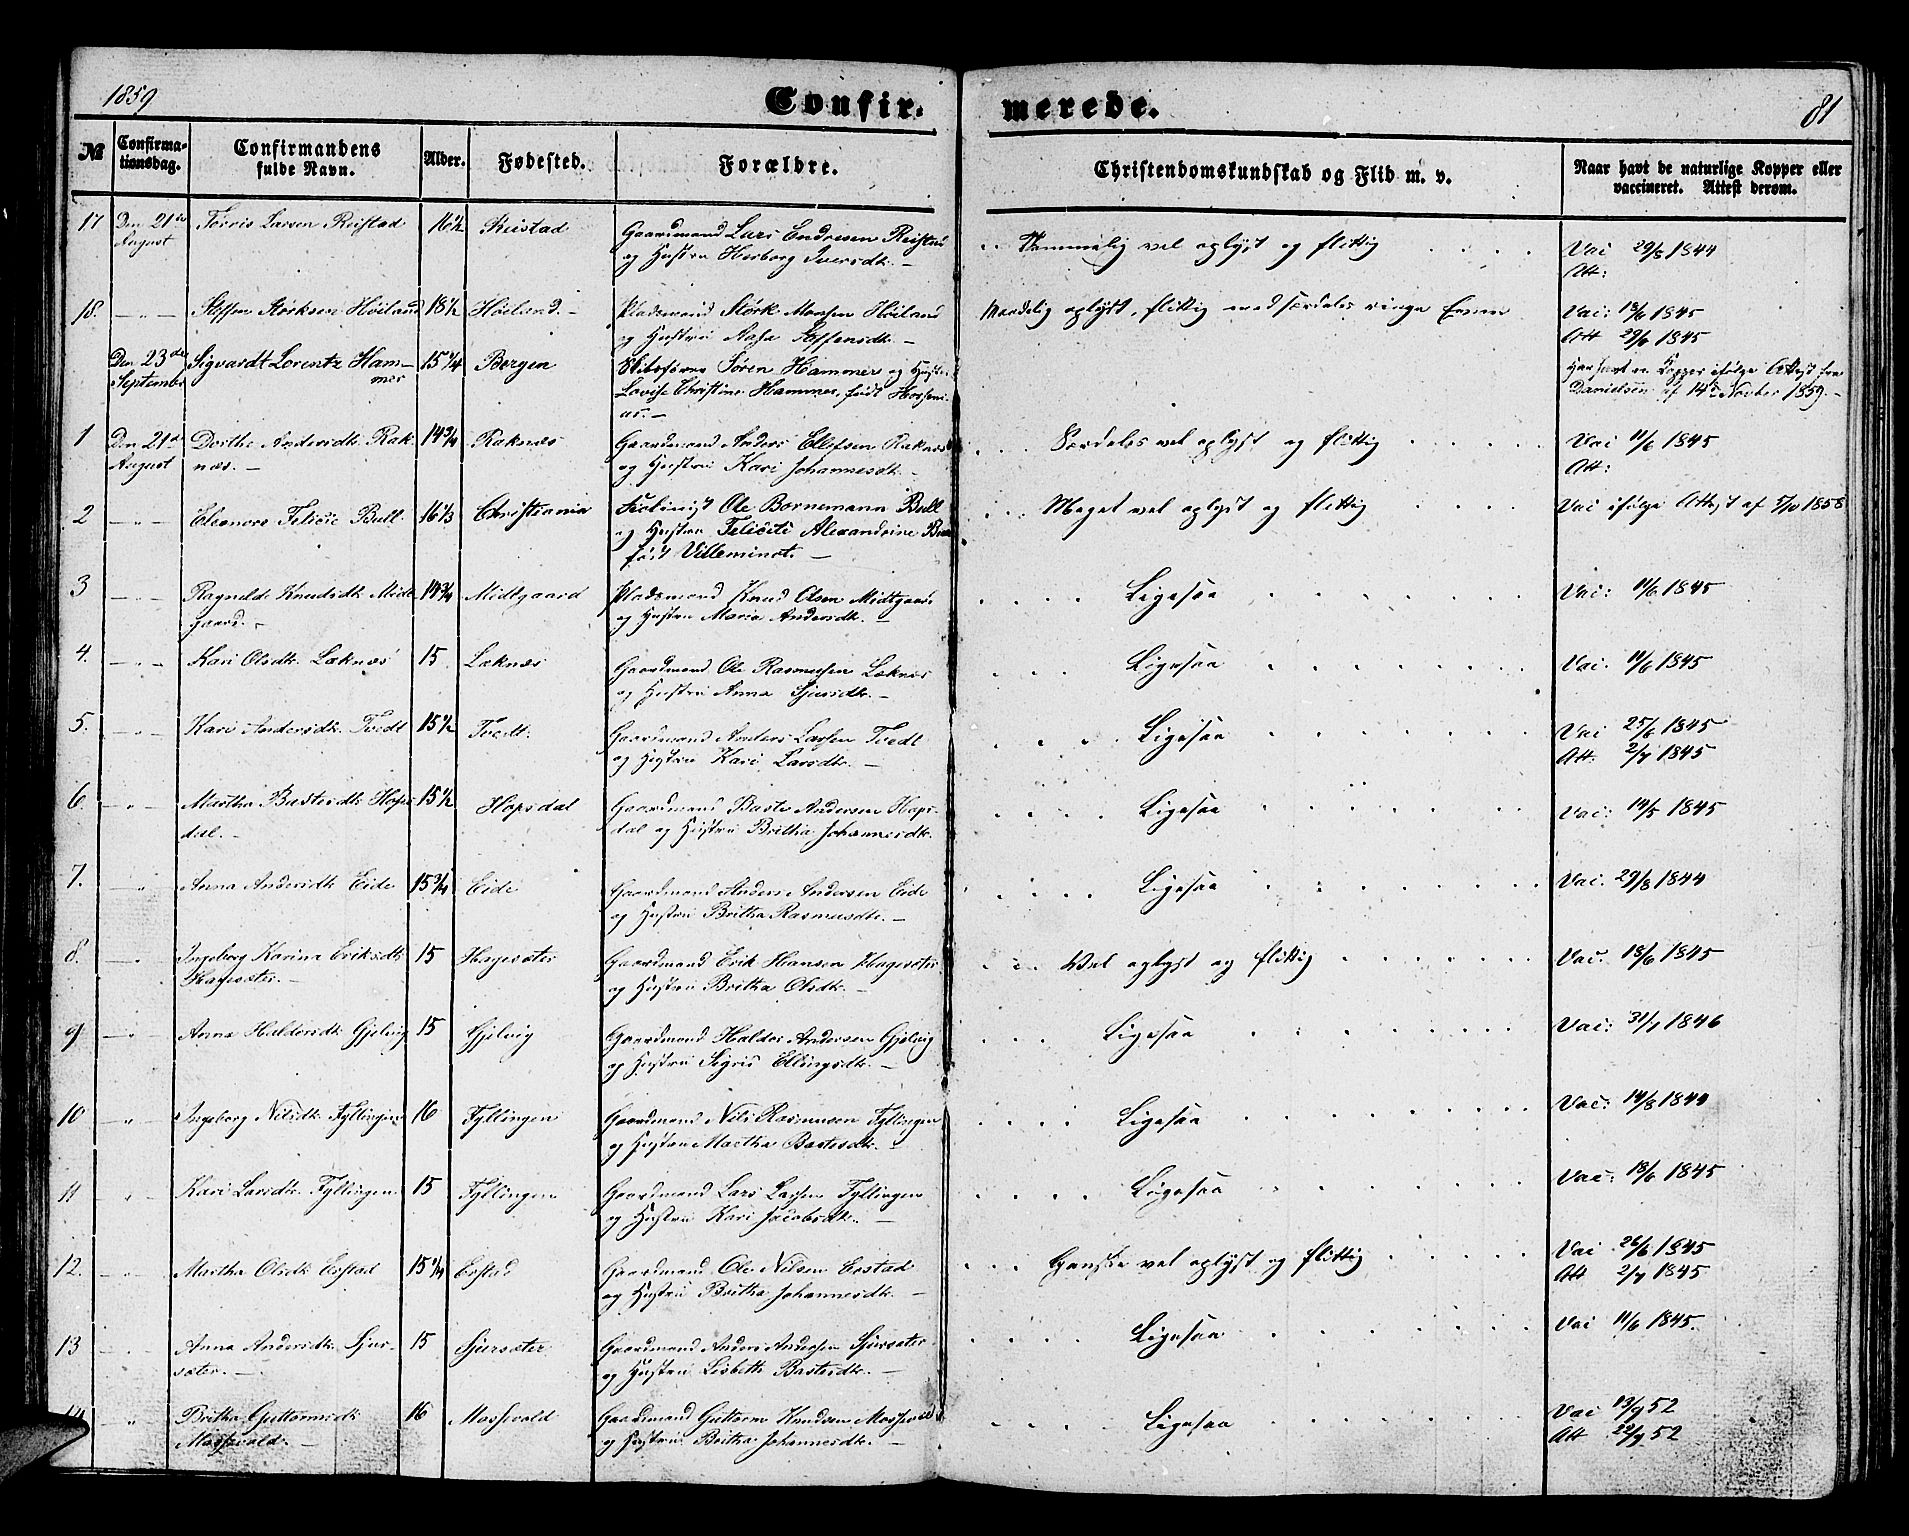 1859
Confir-
merede.
81
№
Confirma-
tionsdag.
Confirmandens
fulde Navn.
Alder.
Fødested.
Forældre.
Christendomskundskab og Flid m. v.
Naar havt de naturlige Kopper eller
vaccineret. Attest derom.
17 Den 21de Larsen Reistad 16½ Reistad Gaardmand Lars Endresen Reistad Temmelig vel oplyst og flittig Vac 29/8 1844
August og Hustru Herborg Iversdtr. Att:
18. — " — Steffen Størksen Høiland 18½ Høiland. Pladsmand Størk Monsen Høiland Maadelig oplyst, flittig med særdeles ringe Evner Vac: 18/6 1845
og Hustru Aasa Steffensdtr. Att 29/6 1845
Den 23de Sigvardt Lorentz Ham- 15¼ Bergen Skibsfører Søren Hammer og Hustru Har havt n. Kopper ifølge Attest fra
September mer Lovise Christine Hammer, født Danielsen af 14de Novber 1859.
1 Den 21de Dorthe Andersdtr. Rak- 14¾ Raknæs Gaardmand Anders Ellefsen Raknæs Særdeles vel oplyst og flittig Vac 11/6 1845
August næs. og Hustru Kari Johannesdtr. Att:
2 — " — Eleonore Felicie Bull. 16⅓ Christiania Ole Bornemann Bull Meget vel oplyst og flittig Vac ifølge Attest af 5/10 1858
og Hustru Felicité Alexandrine Bull
født Villeminot.
3 — " — Ragnilde Knudsdtr. Midt- 14¾ Midtgaard Pladsmand Knud Olsen Midtgaard Ligesaa Vac: 11/6 1845
gaard. og Hustru Maria Andersdtr.
4. — " — Kari Olsdtr. Læknæs 15 Læknæs Gaardmand Ole Rasmussen Læknæs Ligesaa Vac. 11/6 1845
og Hustru Anna Sjursdtr.
5. — " — Kari Andersdtr. Tvedt 15½ Tvedt. Gaardmand Anders Larsen Tvedt Ligesaa Vac 25/6 1845
og Hustru Kari Larsdtr. Att. 2/7 1845
6. — " — Martha Bastesdtr. Hops- 15½ Hopsdal Gaardmand Baste Andersen Hops- Ligesaa Vac: 14/5 1845
dal. dal og Hustru Britha Johannesdtr.
7. — " — Anna Andersdtr. Eide 15¾ Eide Gaardmand Anders Andersen Eide Ligesaa Vac. 29/8 1844
og Hustru Britha Rasmusdtr.
8. — " — Ingeborg Karina Eriksdtr. 15 Hagesæter Gaardmand Erik Hansen Hagesæter Vel oplyst og flittig Vac: 18/6 1845
Hagesæter. og Hustru Britha Olsdtr.
9 — " — Anna Haldorsdtr. Gjelvig 15 Gjelvig Gaardmand Haldor Andersen Gjelvig Ligesaa Vac: 31/1 1846
og Hustru Sigrid Ellingsdtr.
10 — " — Ingeborg Nilsdtr. Fyllingen 16 Fyllingen Gaardmand Nils Rasmussen Fyllingen Ligesaa Vac: 14/8 1844
og Hustru Martha Bastesdtr.
11 " — Kari Larsdtr. Fyllingen 15 Fyllingen Gaardmand Lars Larsen Fyllingen Ligesaa Vac: 18/6 1845
og Hustru Kari Jacobsdtr.
12. " — Martha Olsdtr. Erstad 15¼ Erstad Gaardmand Ole Nilsen Erstad Ganske vel oplyst og flittig Vac 26/6 1845
og Hustru Britha Johannesdtr. Att 2/7 1845
13 — " — Anna Andersdtr. Sjur- 15 Sjursæter. Gaardmand Anders Andersen Sjursæter Ligesaa Vac 11/6 1845.
sæter. og Hustru Lisbeth Bastesdtr.
14 " Britha Guttormsdtr. 16 Mosevold Gaardmand Guttorm Knudsen Mosevold Ligesaa Vac 13/9 52
Mosevold. og Hustru Britha Johannesdtr. Att 22/9 52